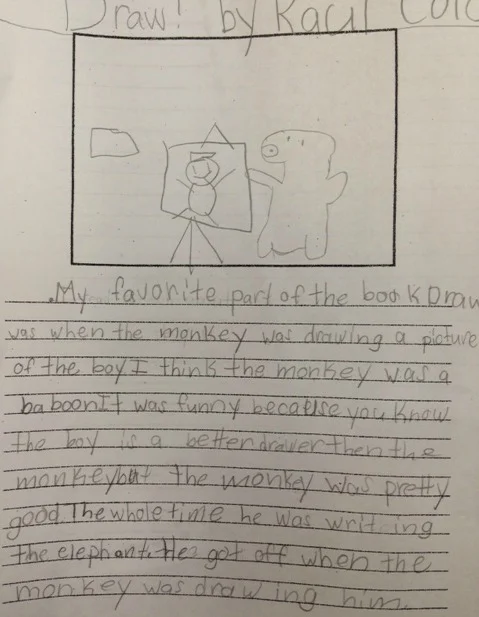 Draw! by Raúl Coló
My favorite part of the book Draw
was when the monkey was drawing a picture
of the boy I think the monkey was a
baboon It was funny because you know
the boy is a better drawer then the
monkey but the monkey was pretty
good The whole time he was writing
the elephant. He got off when the
monkey was drawing him.